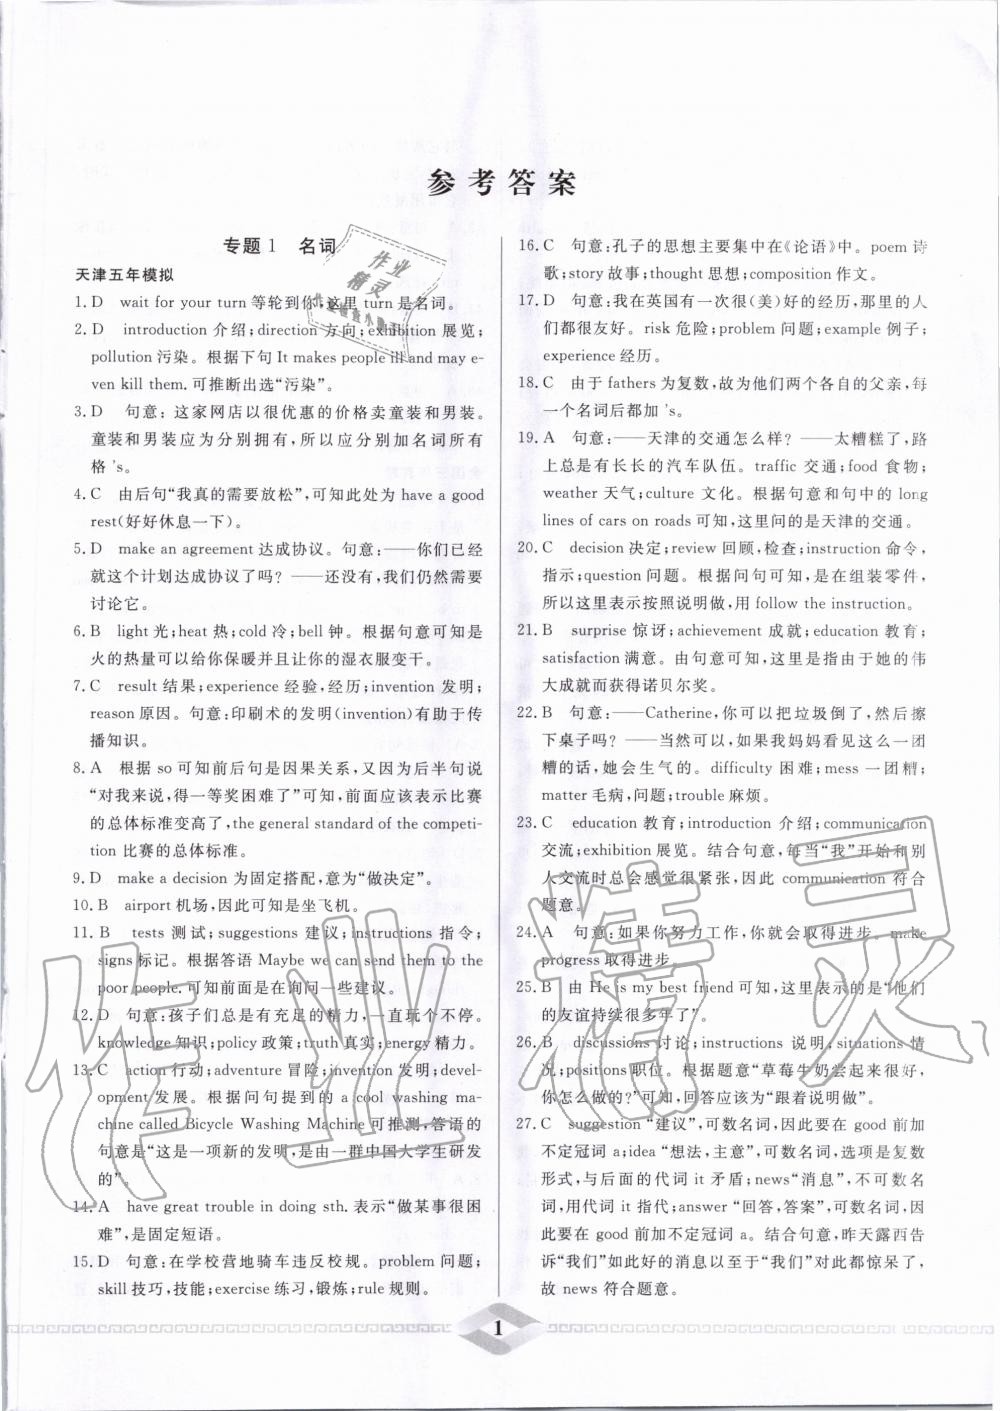 参考答案
专题1 名词
天津五年模拟
1. D wait for your turn 等轮到你,这里 turn 是名词。
2. D introduction 介绍;direction 方向;exhibition 展览;
pollution 污染。根据下句 It makes people ill and may e-
ven kill them. 可推断出选“污染”。
3. D 句意:这家网店以很优惠的价格卖童装和男装。
童装和男装应为分别拥有,所以应分别加名词所有
格 's。
4. C 由后句“我真的需要放松”,可知此处为 have a good
rest(好好休息一下)。
5. D make an agreement 达成协议。句意:——你们已经
就这个计划达成协议了吗?——还没有,我们仍然需要
讨论它。
6. B light 光;heat 热;cold 冷;bell 钟。根据句意可知是
火的热量可以给你保暖并且让你的湿衣服变干。
7. C result 结果;experience 经验,经历;invention 发明;
reason 原因。句意:印刷术的发明(invention)有助于传
播知识。
8. A 根据 so 可知前后句是因果关系,又因为后半句说
“对我来说,得一等奖困难了”可知,前面应该表示比赛
的总体标准变高了,the general standard of the competi-
tion 比赛的总体标准。
9. D make a decision 为固定搭配,意为“做决定”。
10. B airport 机场,因此可知是坐飞机。
11. B tests 测试;suggestions 建议;instructions 指令;
signs 标记。根据答语 Maybe we can send them to the
poor people. 可知前面是在询问一些建议。
12. D 句意:孩子们总是有充足的精力,一直玩个不停。
knowledge 知识;policy 政策;truth 真实;energy 精力。
13. C action 行动;adventure 冒险;invention 发明;devel-
opment 发展。根据问句提到的 a cool washing ma-
chine called Bicycle Washing Machine 可推测,答语的
句意是“这是一项新的发明,是由一群中国大学生研发
的”。
14. A have great trouble in doing sth. 表示“做某事很困
难”,是固定短语。
15. D 句意:在学校营地骑车违反校规。problem 问题;
skill 技巧,技能;exercise 练习,锻炼;rule 规则。
16. C 句意:孔子的思想主要集中在《论语》中。poem 诗
歌;story 故事;thought 思想;composition 作文。
17. D 句意:我在英国有一次很(美)好的经历,那里的人
们都很友好。risk 危险;problem 问题;example 例子;
experience 经历。
18. C 由于 fathers 为复数,故为他们两个各自的父亲,每
一个名词后都加 's。
19. A 句意:——天津的交通怎么样?——太糟糕了,路
上总是有长长的汽车队伍。traffic 交通;food 食物;
weather 天气;culture 文化。根据句意和句中的 long
lines of cars on roads 可知,这里问的是天津的交通。
20. C decision 决定;review 回顾,检查;instruction 命令,
指示;question 问题。根据问句可知,是在组装零件,
所以这里表示按照说明做,用 follow the instruction.
21. B surprise 惊讶;achievement 成就;education 教育;
satisfaction 满意。由句意可知,这里是指由于她的伟
大成就而获得诺贝尔奖。
22. B 句意:——Catherine,你可以把垃圾倒了,然后擦
下桌子吗?——当然可以,如果我妈妈看见这么一团
糟的话,她会生气的。difficulty 困难;mess 一团糟;
matter 毛病,问题;trouble 麻烦。
23. C education 教育;introduction 介绍;communication
交流;exhibition 展览。结合句意,每当“我”开始和别
人交流时总会感觉很紧张,因此 communication 符合
题意。
24. A 句意:如果你努力工作,你就会取得进步。make
progress 取得进步。
25. B 由 He is my best friend 可知,这里表示的是“他们
的友谊持续很多年了”。
26. B discussions 讨论;instructions 说明;situations 情
况;positions 职位。根据题意“草莓牛奶尝起来很好,
你怎么做的?”可知,回答应该为“跟着说明做”。
27. C suggestion “建议”,可数名词,因此要在 good 前加
不定冠词 a;idea “想法,主意”,可数名词,选项是复数
形式,与后面的代词 it 矛盾;news“消息”,不可数名
词,用代词 it 指代;answer “回答,答案”,可数名词,因
此要在 good 前加不定冠词 a。结合句意,昨天露西告
诉“我们”如此好的消息以至于“我们”对此都惊呆了,
故 news 符合题意。
1
作业精灵